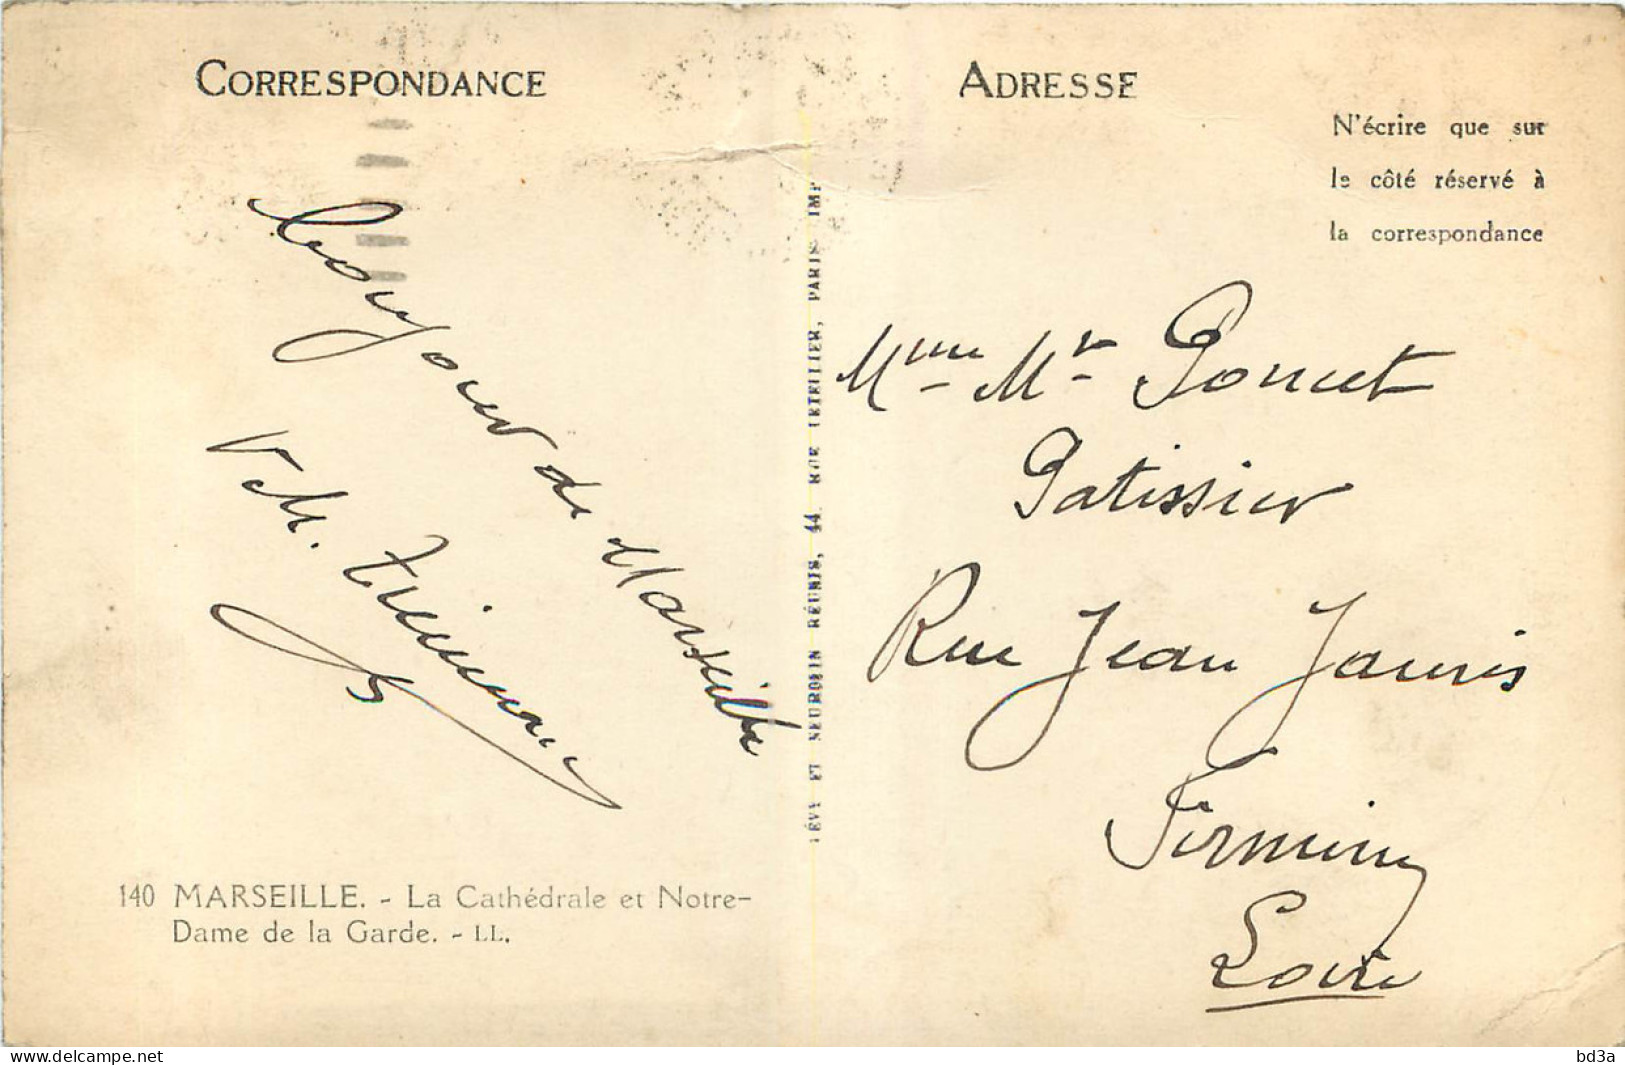 CORRESPONDANCE
Bonjour de Marseille
V. M.
140 MARSEILLE. - La Cathédrale et Notre-
Dame de la Garde. - LL.
LÉVY ET NEURDEIN RÉUNIS, 44, RUE LETELLIER, PARIS IMP
ADRESSE
N'écrire que sur
le côté réservé à
la correspondance
Mme Mr Poncet
Patissier
Rue Jean Jaurès
Firminy
Loire
delcampe.net
bd3a